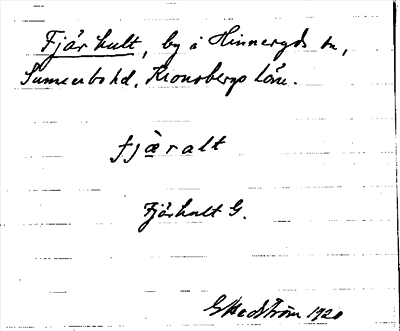 Fjärhult, by i Hinneryds sn,
Sunnerbo hd, Kronobergs län.
fjæ̀ralt
Fjärhult G.
G Hedström 1920